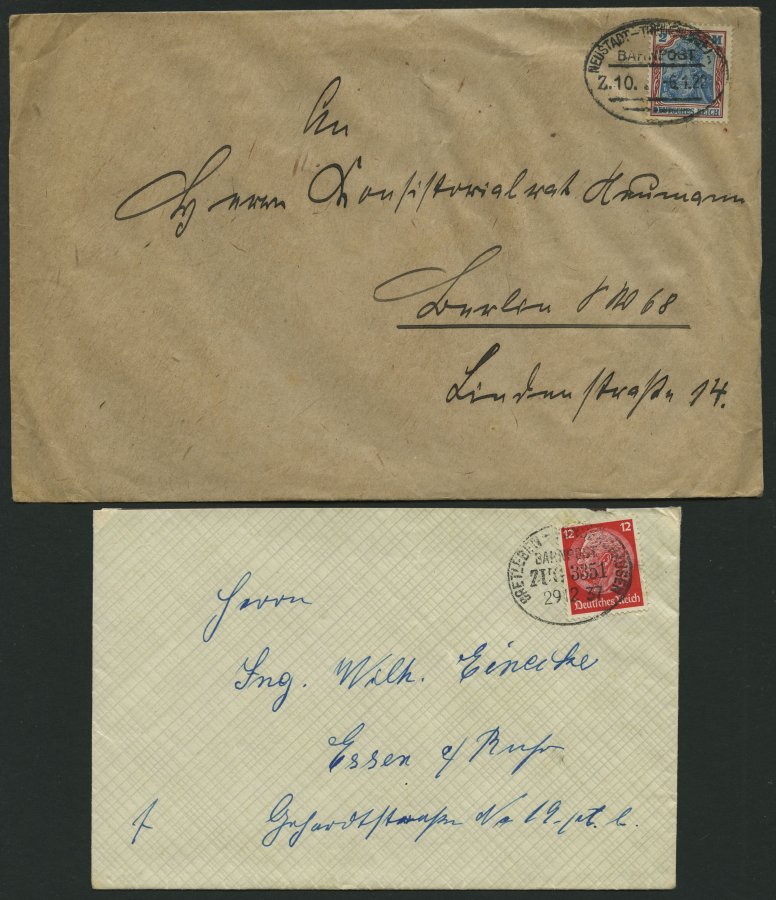 NEUSTADT
BAHNPOST
Z.10.
2 M
DEUTSCHES REICH
An
Herrn Konsistorialrat Neumann
Berlin SW 68
Lindenstraße 14.
BRETLEBEN
BAHNPOST
ZUG 3351
29 12 37
12 12
Deutsches Reich
Herrn
Ing. Wilh. Einecke
Essen a/ Ruhr
No 19